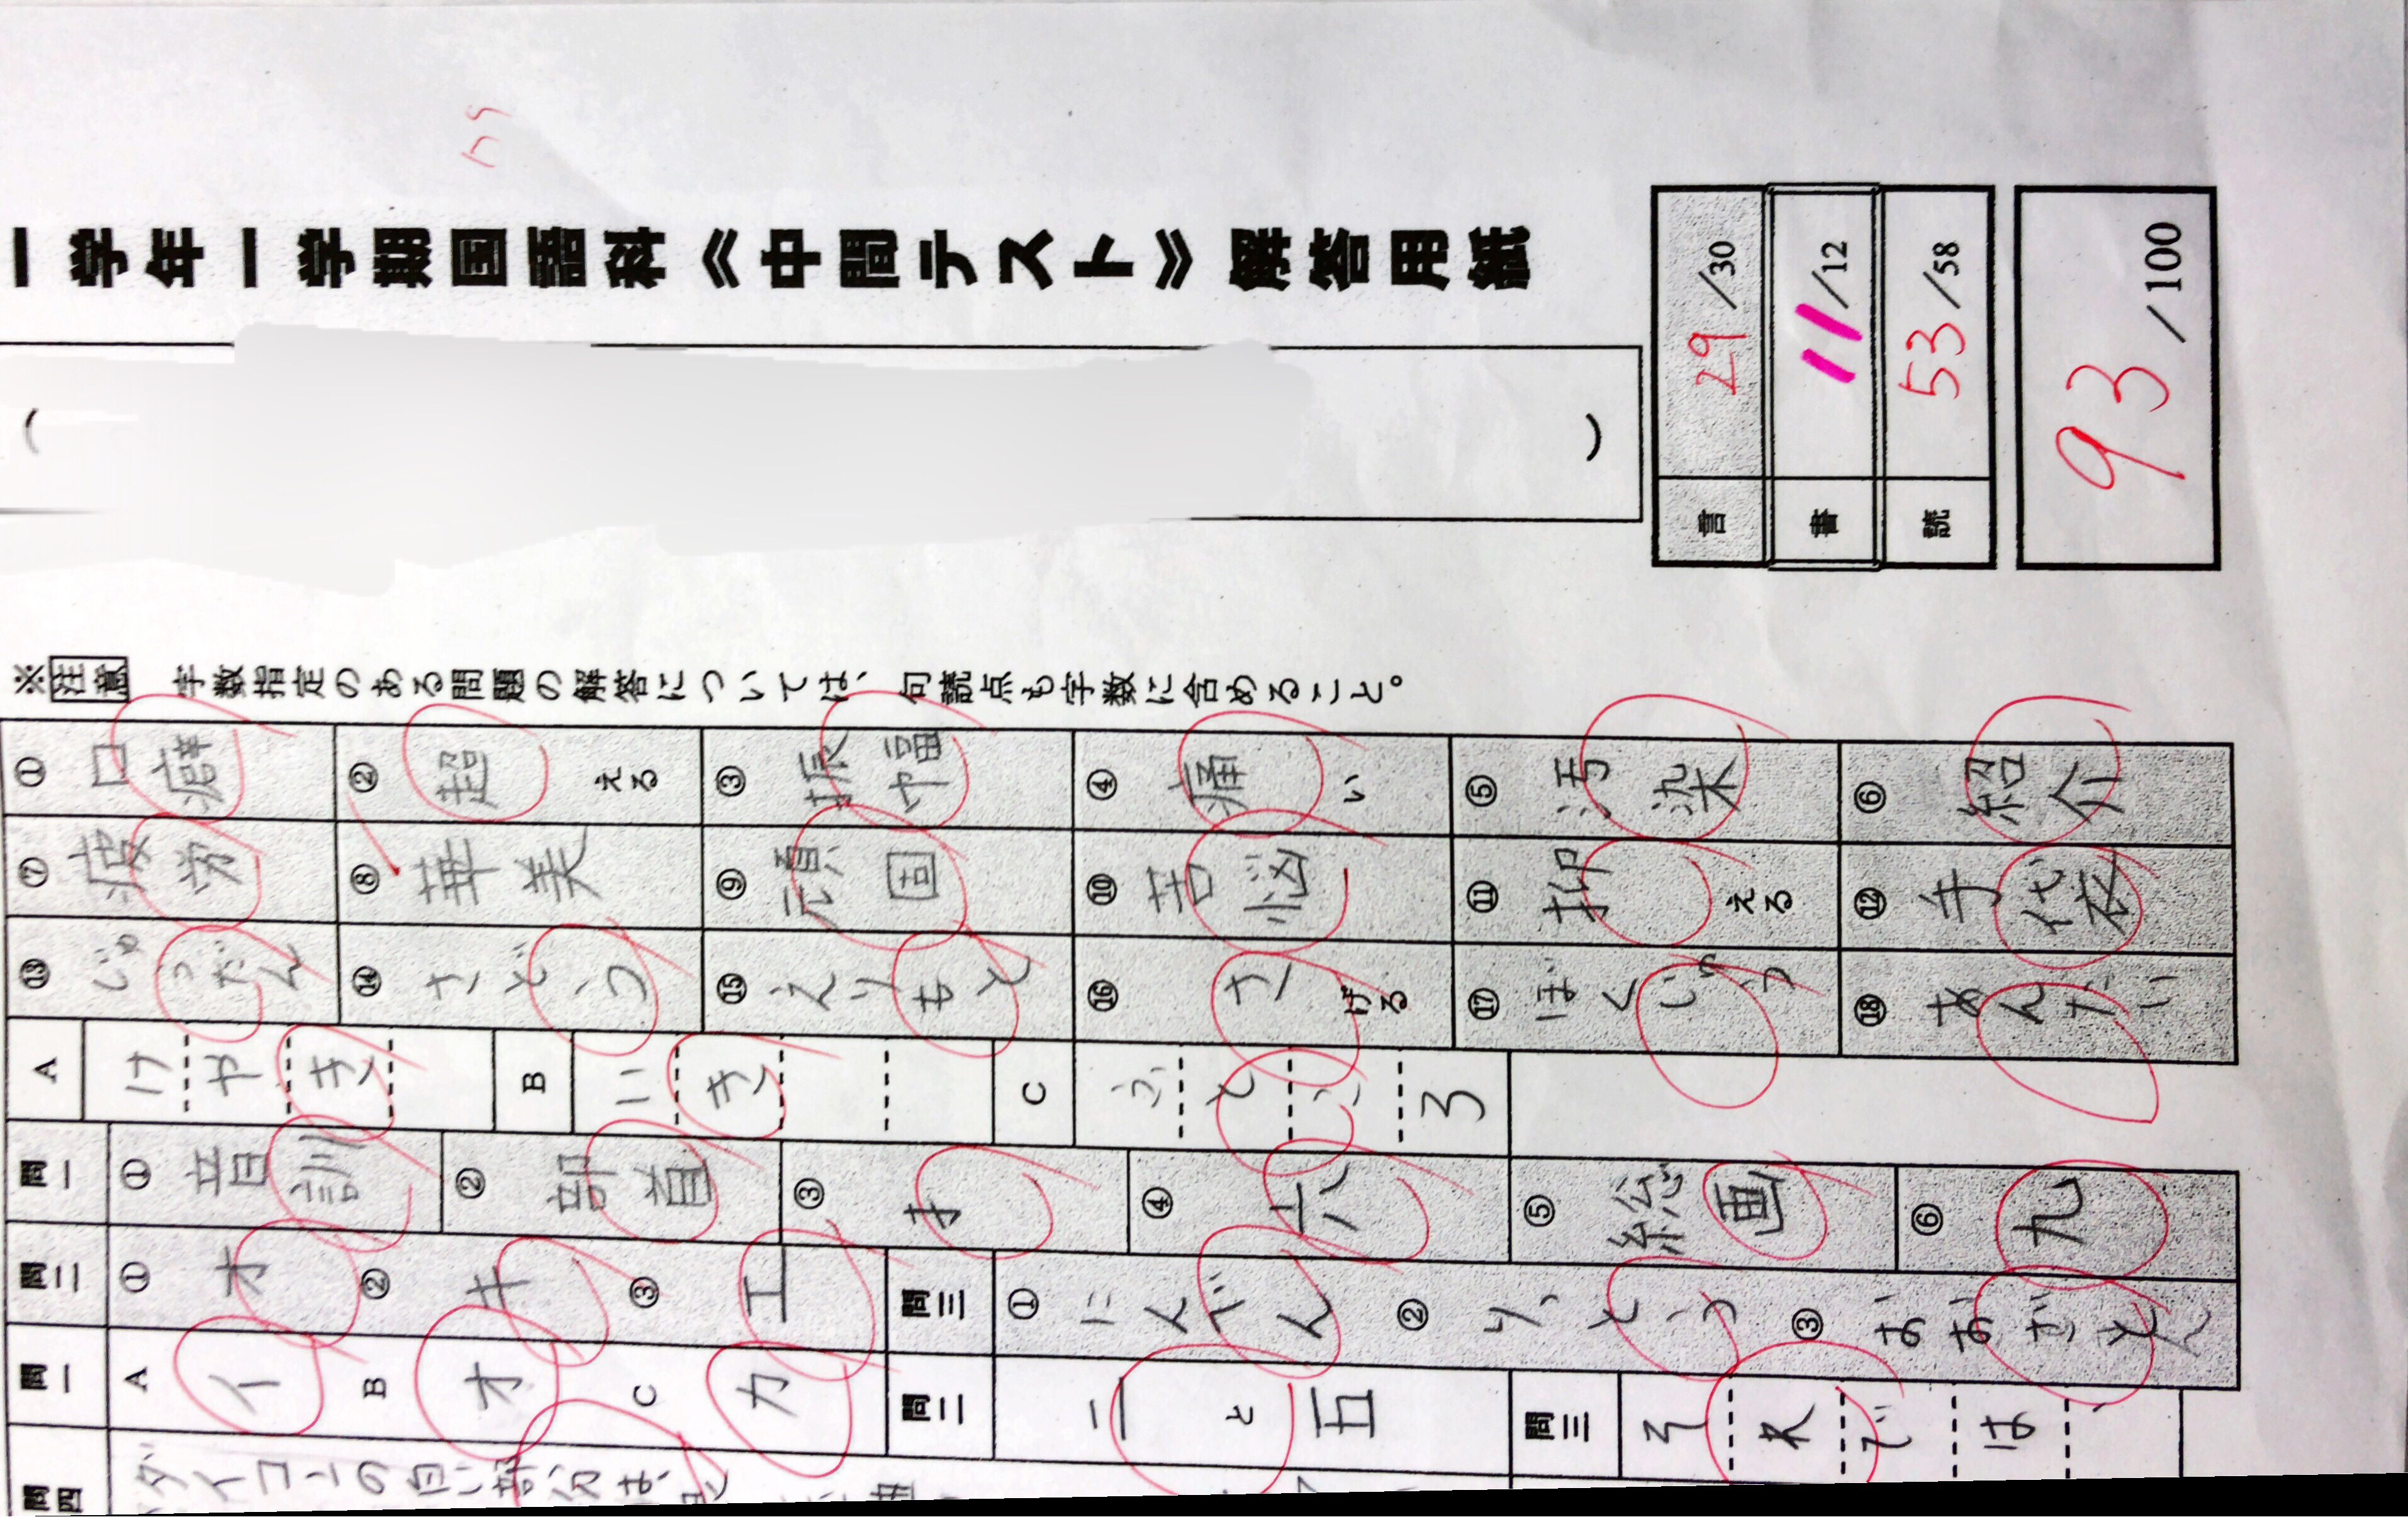 一学年一学期国語科≪中間テスト≫解答用紙
( )
言 29/30
書 11/12
読 53/58
93/100
※注意 字数指定のある問題の解答については、句読点も字数に含めること。
① 口癖 ② 超える ③ 振幅 ④ 痛い ⑤ 汚染 ⑥ 紹介
⑦ 疲労 ⑧ 華美 ⑨ 頑固 ⑩ 苦悩 ⑪ 抑える ⑫ 手袋
⑬ じゅうだん ⑭ さどう ⑮ えりもと ⑯ さげる ⑰ ぼくじゅう ⑱ あんたい
A けやき B いき C ふところ
問一 ① 音訓 ② 部首 ③ 扌 ④ 六 ⑤ 総画 ⑥ 九
問二 ① オ ② キ ③ エ 問三 ① にんべん ② りっとう ③ おおざと
問一 A イ B オ C カ 問二 二と五 問三 それでは、
問四 ダイコンの白い部分は、